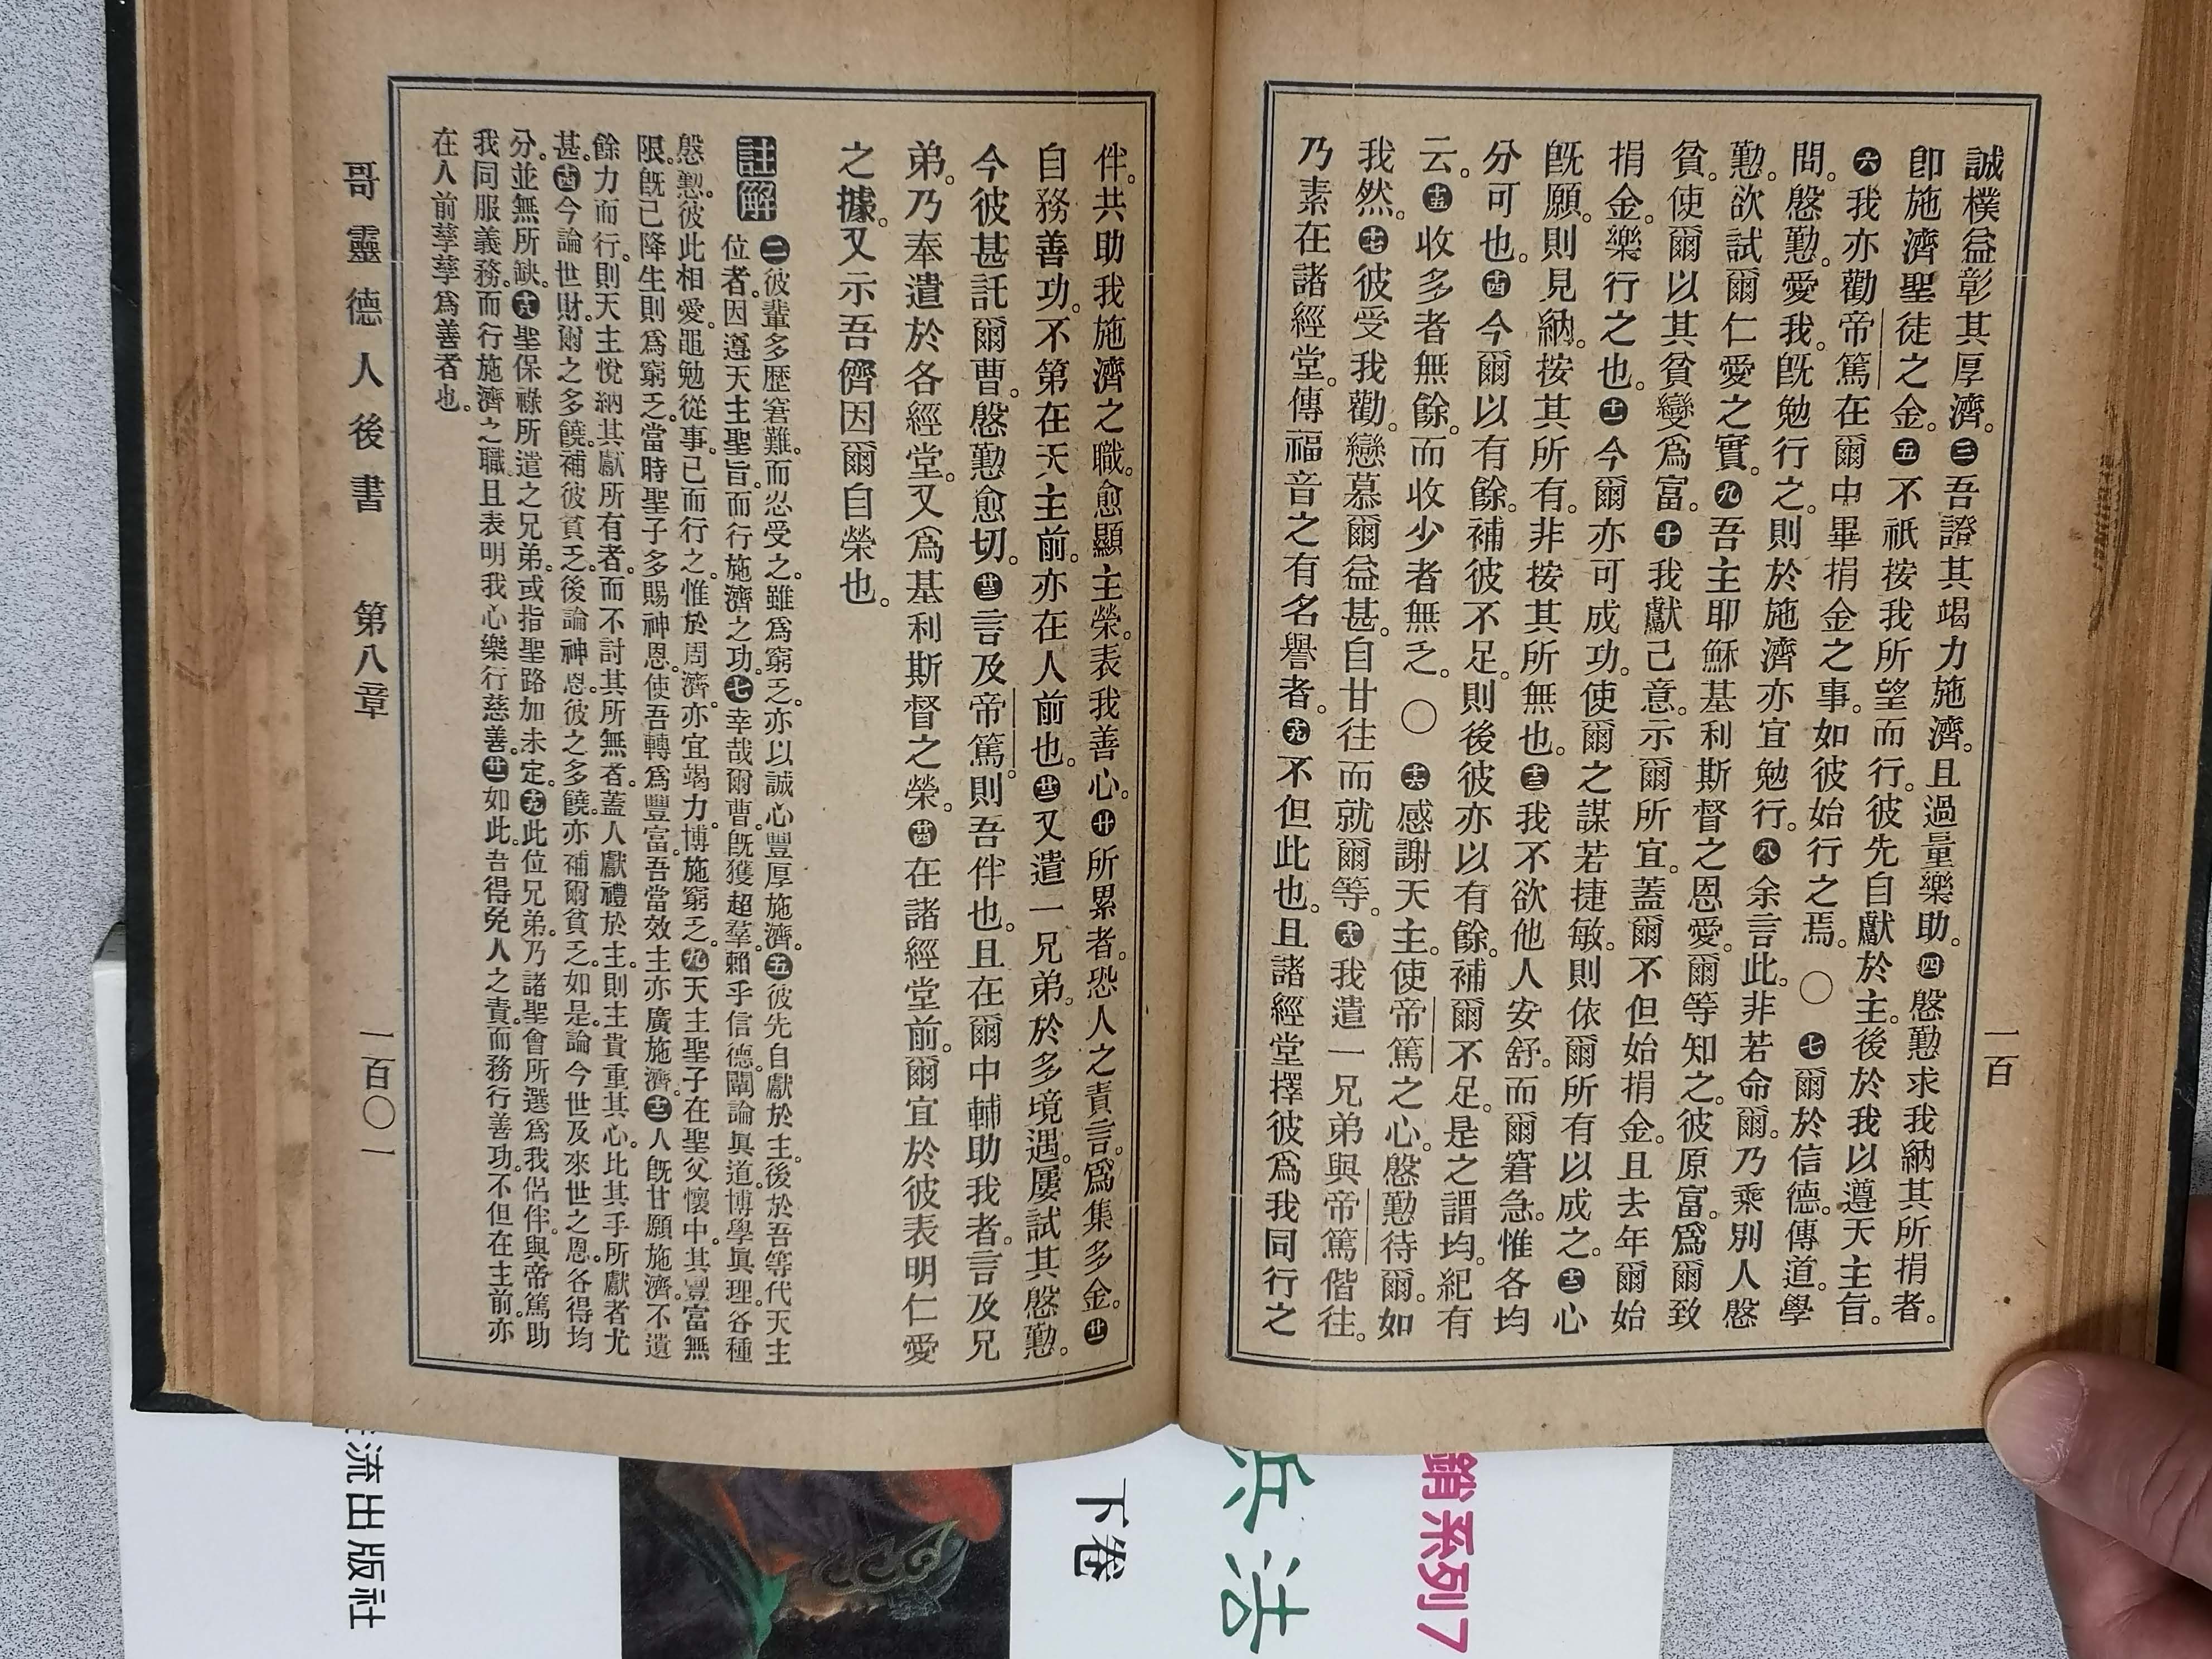 一百
誠樸益彰其厚濟。㊂吾證其竭力施濟。且過量樂助。㊃慇懃求我納其所捐者。
卽施濟聖徒之金。㊄不祇按我所望而行。彼先自獻於主。後於我以遵天主旨。
㊅我亦勸帝篤在爾中畢捐金之事。如彼始行之焉。〇㊆爾於信德。傳道。學
問。慇懃。愛我。旣勉行之。則於施濟亦宜勉行。㊇余言此。非若命爾。乃乘別人慇
懃。欲試爾仁愛之實。㊈吾主耶穌基利斯督之恩愛。爾等知之。彼原富。爲爾致
貧。使爾以其貧變爲富。㊉我獻己意。示爾所宜。蓋爾不但始捐金。且去年爾始
捐金。樂行之也。⑪今爾亦可成功。使爾之謀若捷敏。則依爾所有以成之。⑫心
旣願。則見納。按其所有。非按其所無也。⑬我不欲他人安舒。而爾窘急。惟各均
分可也。⑭今爾以有餘。補彼不足。則後彼亦以有餘。補爾不足。是之謂均。紀有
云。⑮收多者無餘。而收少者無乏。〇⑯感謝天主。使帝篤之心。慇懃待爾。如
我然。⑰彼受我勸。戀慕爾益甚。自甘往而就爾等。⑱我遣一兄弟與帝篤偕往。
乃素在諸經堂。傳福音之有名譽者。⑲不但此也。且諸經堂擇彼爲我同行之
伴。共助我施濟之職。愈顯主榮。表我善心。⑳所累者。恐人之責言。爲集多金。㉑
自務善功。不第在天主前。亦在人前也。㉒又遣一兄弟。於多境遇。屢試其慇懃。
今彼甚託爾曹。慇懃愈切。㉓言及帝篤。則吾伴也。且在爾中輔助我者。言及兄
弟。乃奉遣於各經堂。又爲基利斯督之榮。㉔在諸經堂前。爾宜於彼表明仁愛
之據。又示吾儕因爾自榮也。
註解 ㊁彼輩多歷窘難。而忍受之。雖爲窮乏。亦以誠心豐厚施濟。㊄彼先自獻於主。後於吾等代天主
位者。因遵天主聖旨。而行施濟之功。㊆幸哉爾曹。旣獲超羣。賴乎信德。闡論眞道。博學眞理。各種
慇懃。彼此相愛。黽勉從事。已而行之。惟於周濟。亦宜竭力。博施窮乏。㊈天主聖子在聖父懷中。其豐富無
限。旣已降生。則爲窮乏。當時聖子多賜神恩。使吾轉爲豐富。吾當效主亦廣施濟。⑫人旣甘願施濟。不遺
餘力而行。則天主悅納其獻所有者。而不討其所無者。蓋人獻禮於主。則主貴重其心。比其手所獻者尤
甚。⑭今論世財。爾之多饒。補彼貧乏。後論神恩。彼之多饒。亦補爾貧乏。如是論今世及來世之恩。各得均
分。並無所缺。⑱聖保祿所遣之兄弟。或指聖路加未定。⑲此位兄弟。乃諸聖會所選爲我侶伴。與帝篤助
我同服義務。而行施濟之職。且表明我心樂行慈善。㉑如此。吾得免人之責。而務行善功。不但在主前。亦
在人前孳孳爲善者也。
哥靈德人後書 第八章 一百〇一
銷系列7
兵法
下卷
流出版社